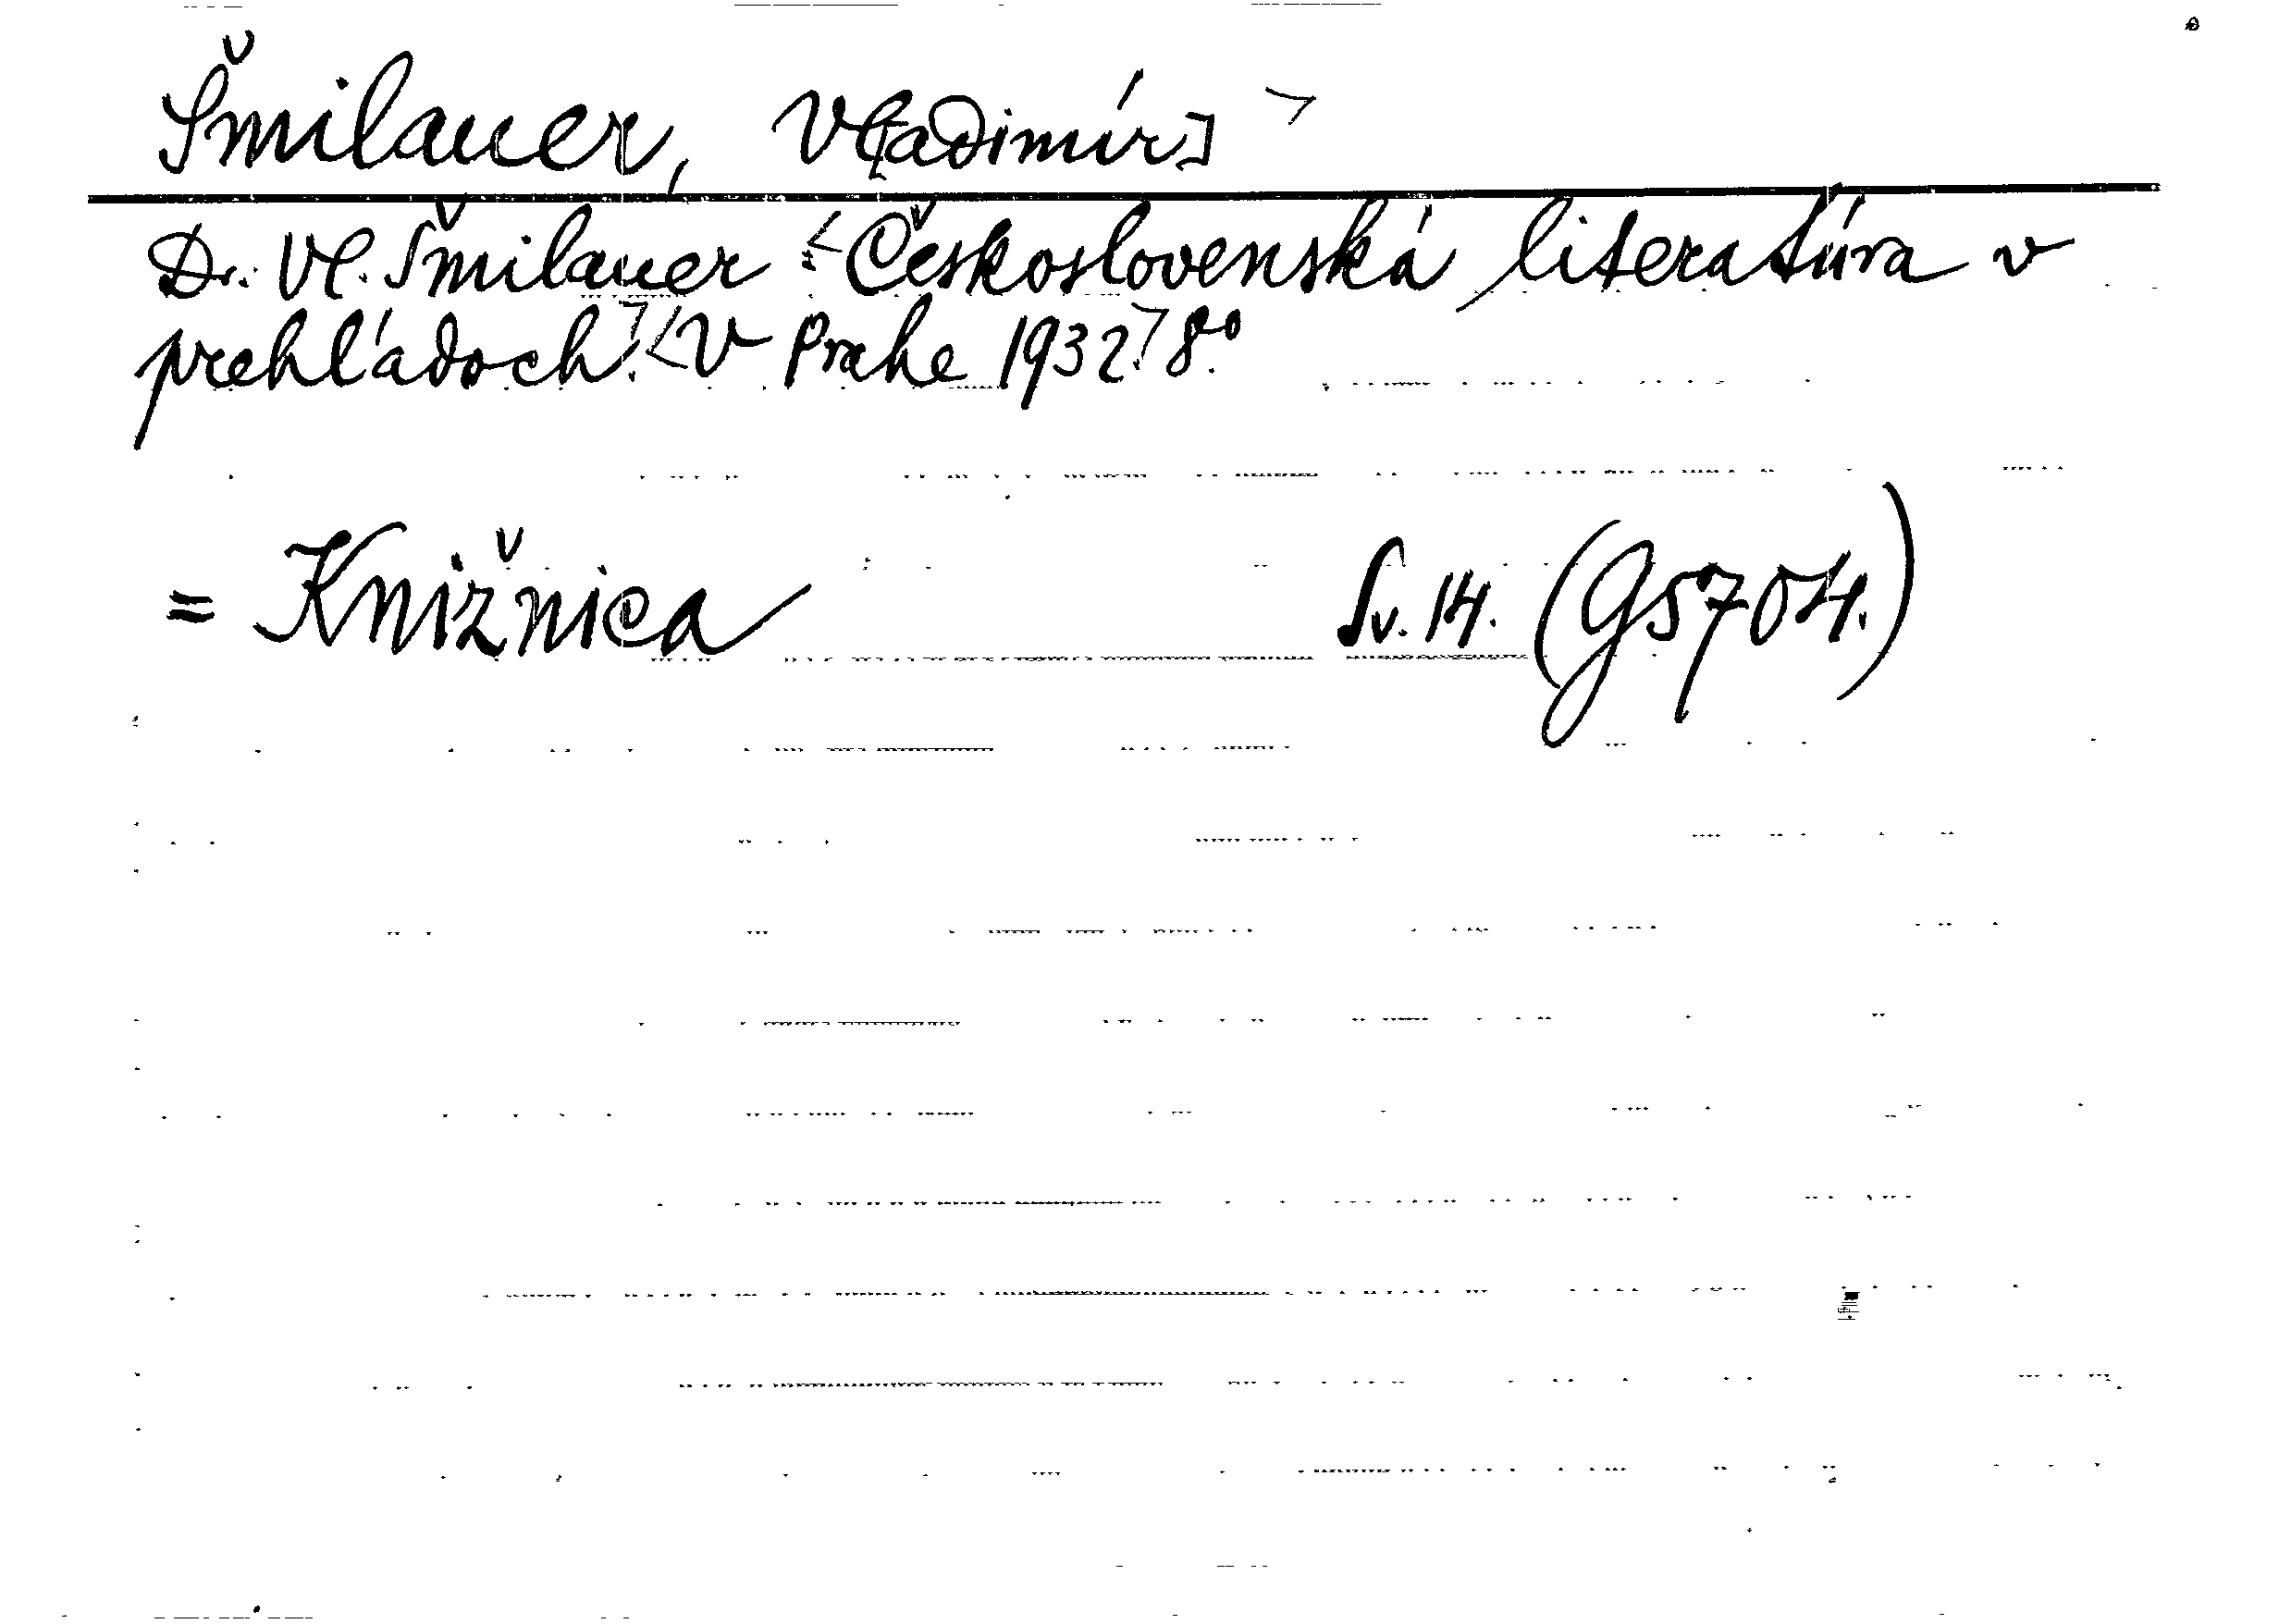 Šmilauer, Vl[adimír] >
Dr. Vl. Šmilauer: <Československá literatúra v
prehľadoch.> <V Prahe 1932.> 8º.
= Knižnica Sv. 14. (G5704.)